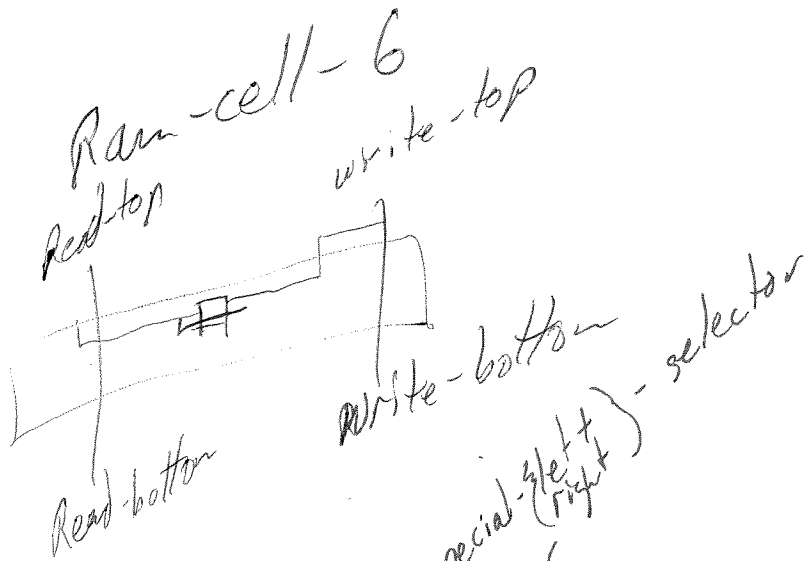 Ram-cell-6
Read-top
write-top
write-bottom
Read-bottom
special-{left
right}-selector